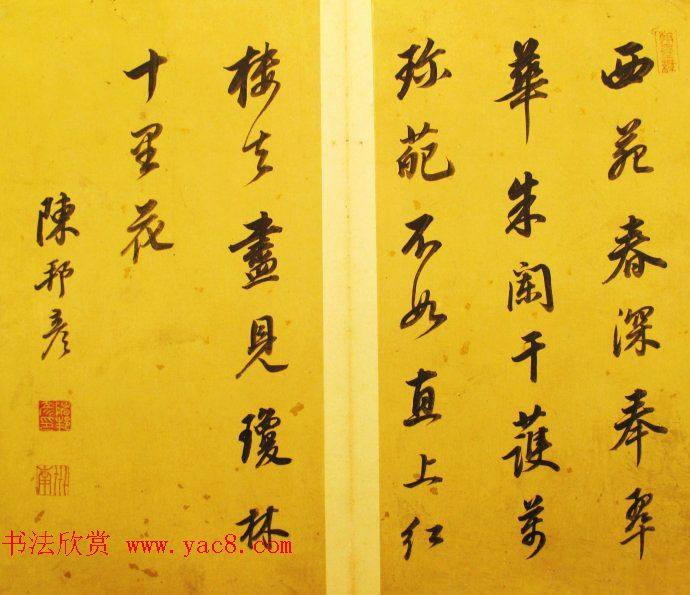 西苑春深奉翠
華朱闌干護萬
珎葩不如直上紅
樓去盡見瓊林
十里花
陳邦彥
书法欣赏 www.yac8.com